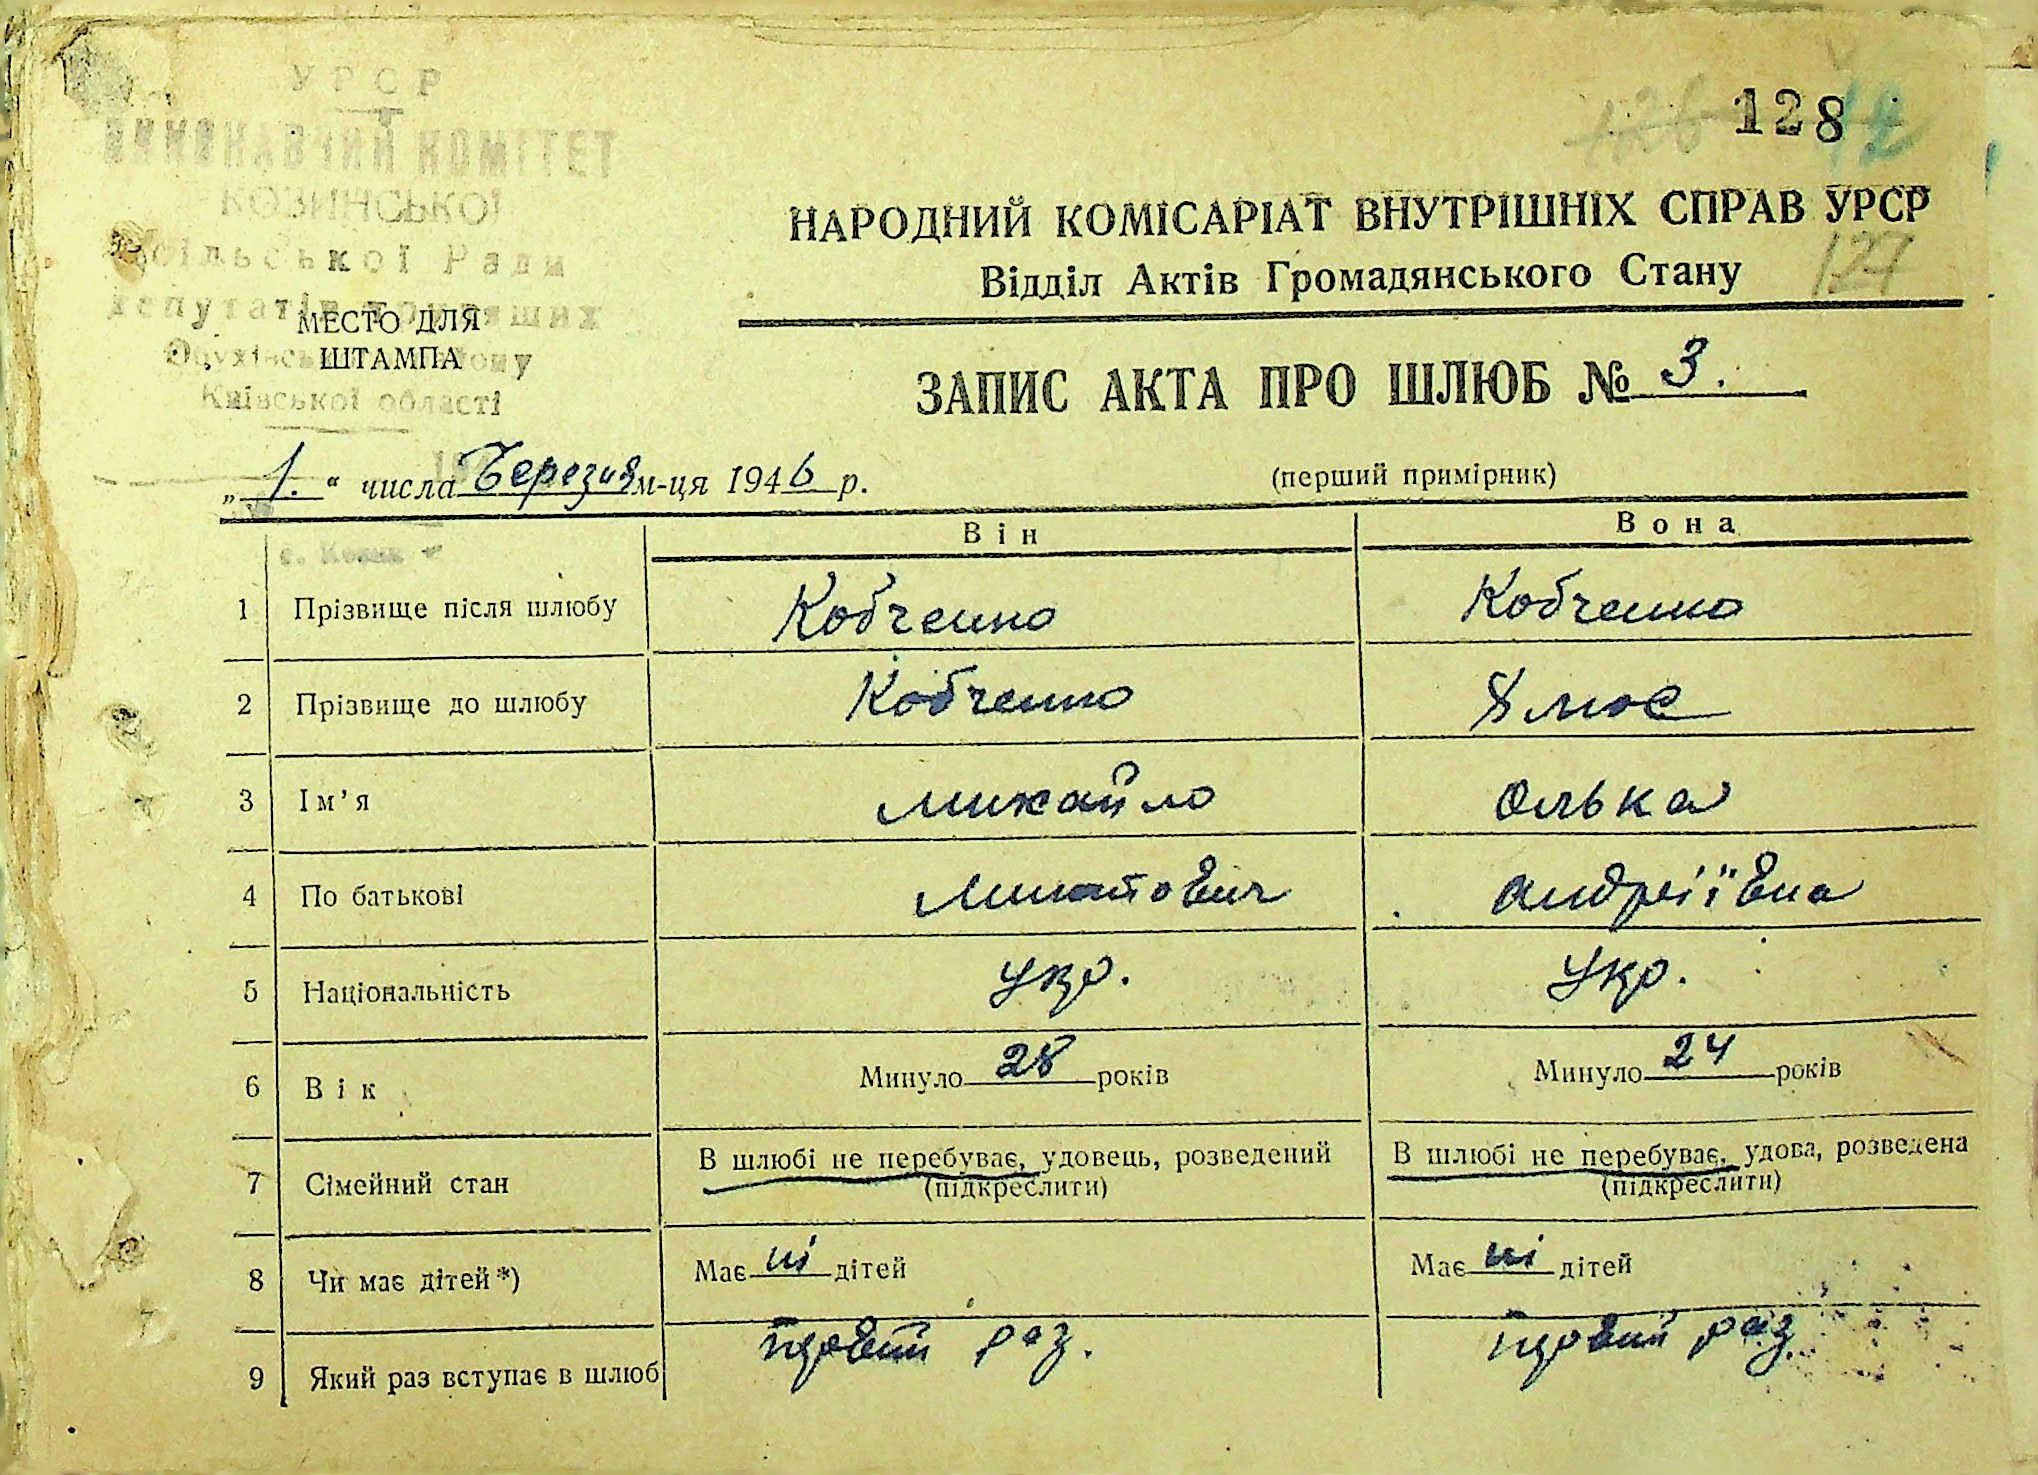 УРСР
ВИКОНАВЧИЙ КОМІТЕТ
КОЗИНСЬКОЇ
Сільської Ради
депутатів трудящих
Обухівського району
Київської області
с. Козин
МЕСТО ДЛЯ
ШТАМПА
128
127
НАРОДНИЙ КОМІСАРІАТ ВНУТРІШНІХ СПРАВ УРСР
Відділ Актів Громадянського Стану
ЗАПИС АКТА ПРО ШЛЮБ № 3.
„ 1. “ числа Березня м-ця 1946 р.
(перший примірник)
Він Вона
1 Прізвище після шлюбу Кобченко Кобченко
2 Прізвище до шлюбу Кобченко
3 Ім’я Михайло Олька
4 По батькові Андріївна
5 Національність Укр. Укр.
6 Вік Минуло 28 років Минуло 24 років
7 Сімейний стан В шлюбі не перебуває, удовець, розведений В шлюбі не перебуває, удова, розведена
(підкреслити) (підкреслити)
8 Чи має дітей*) Має ні дітей Має ні дітей
9 Який раз вступає в шлюб раз. раз